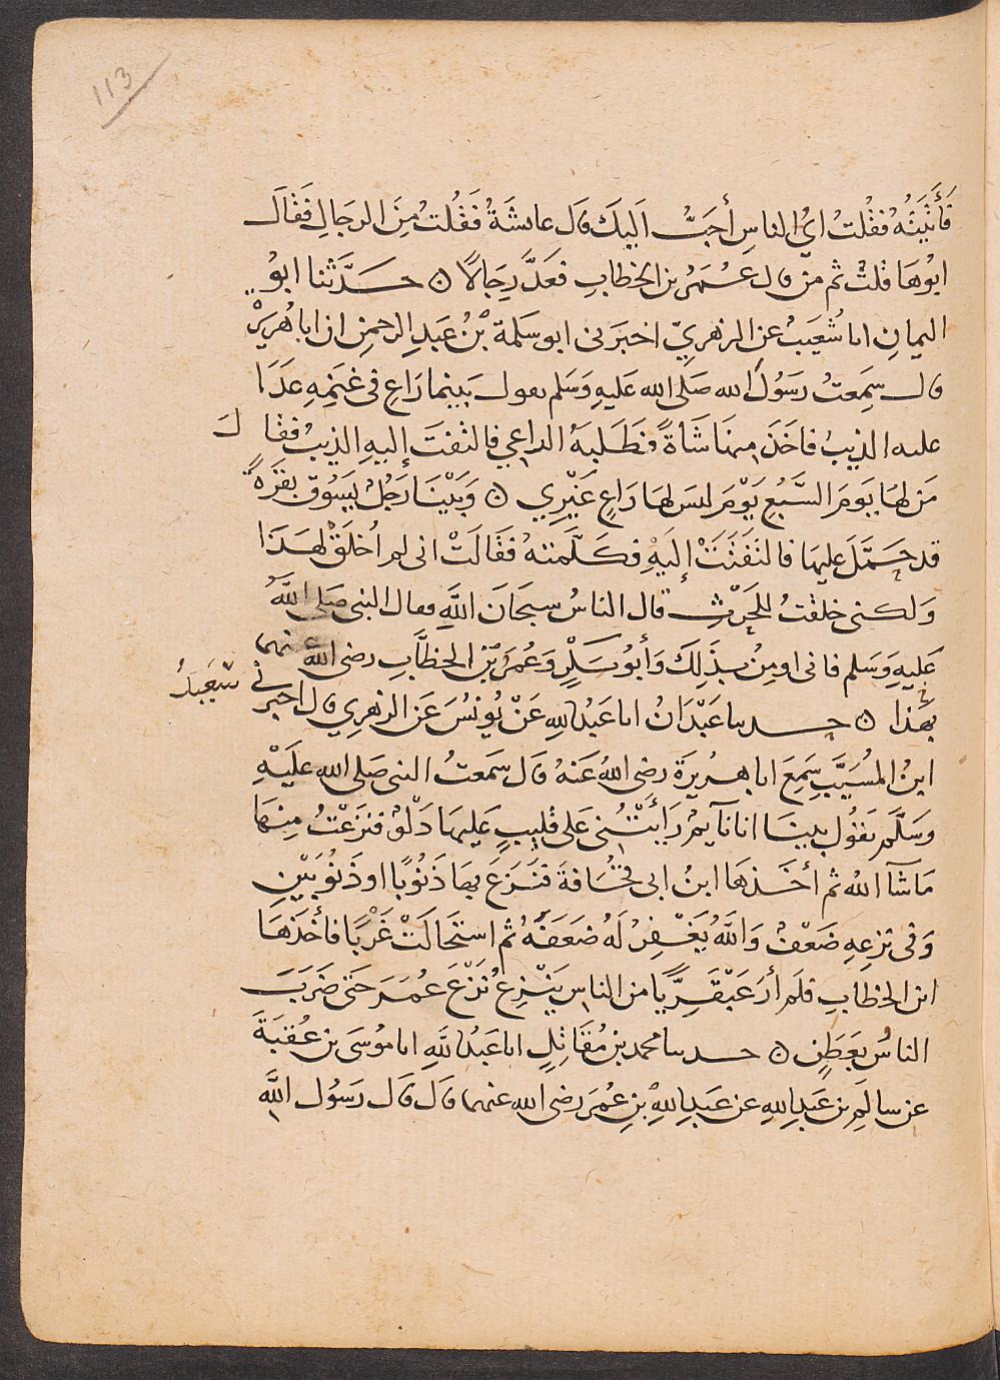 113
فَأَتَيْتُهُ فقُلتُ ايُّ الناسِ أحَبُّ اليكَ قال عايشَةُ فَقُلتُ مِنَ الرجَالِ فَقَالَ
ابُوهَا قُلتُ ثم من قال عُمَرُ بن الخطابِ فَعَدَّ رِجَالًا ۞ حَدَّثنا ابوُ
اليمانِ انا شُعَيبُ عن الزهريّ اخبرَنى ابو سَلَمة بْنُ عَبدِ الرحمنِ ان ابا هُرَيْرَة
قال سَمِعتُ رسَوُلَ الله صَلى الله عَليهِ وَسَلم يقول بَينما رَاعٍ فى غَنَمِهِ عَدَا
عليه الذيبُ فاخَذَ منهَا شَاةً فطَلبهُ الراعي فالتفتَ إليهِ الذيبُ فقالَ
مَن لهَا يَومَ السَّبُعِ يَوْمَ ليسَ لهَا رَاعٍ غَيْرِي ۞ وَبَيْنَا رَجُلٌ يَسَوُقُ بَقَرَةً
قد حَمَّلَ عليهَا فالتَفَتَتْ إِلَيهْ فكَلَّمتهُ فقَالَتْ انى لم أُخلَقْ لهَذَا
وَلكنى خلقتُ للحَرْثِ قال الناسُ سبحَانَ اللهِ فقال النبى صَلى اللَّهُ
عَليهِ وَسَلم فانى اومِنُ بذَلِكَ وَأبُو بَكْرٍ وَعُمَرُ بْن الخطَّابِ رضى الله عنهما
بهَذا ۞ حدثنا عَبْدَانُ انا عَبدُ اللهِ عَنْ يُونُسَ عَن الزهرِي قال اخبرنى سَعيدُ
ابنُ المُسَيَّبِ سَمِعَ ابا هُرَيرةَ رضى اللهُ عَنهُ قال سَمعتُ النبى صَلى الله عَليَهْ
وسَلَّم يَقُول بينَا انا نآيمٌ رَأَيْتُنى على قليبٍ عَليهَا دَلْوٌ فنزَعْتُ مِنهَا
مَا شآ اللهُ ثم أخَذهَا ابنُ ابى قحُافةَ فنَزَعَ بهَا ذَنوُبًا او ذَنوُبَيْنِ
وَفى نزعِهِ ضَعْفٌ وَاللَّهُ يَغْفِرُ لَهُ ضَعَفَهُ ثم استحَالَتْ غَرْبًا فأخَذهَا
ابن الخطابِ فلَم أرَ عَبْقَرِيًّا من الناسِ يَنزِعُ نَزْعَ عُمَرَ حَتى ضَرَبَ
الناسُ بعَطَنٍ ۞ حدثنا محمد بن مُقَاتِلٍ انا عَبدُ اللهِ انا مُوسَى بن عُقبَةَ
عن سالِمِ بن عَبدِ اللهِ عن عَبدِ اللهِ بنِ عُمَرَ رضى الله عنهما قال قال رَسُول اللَّهِ